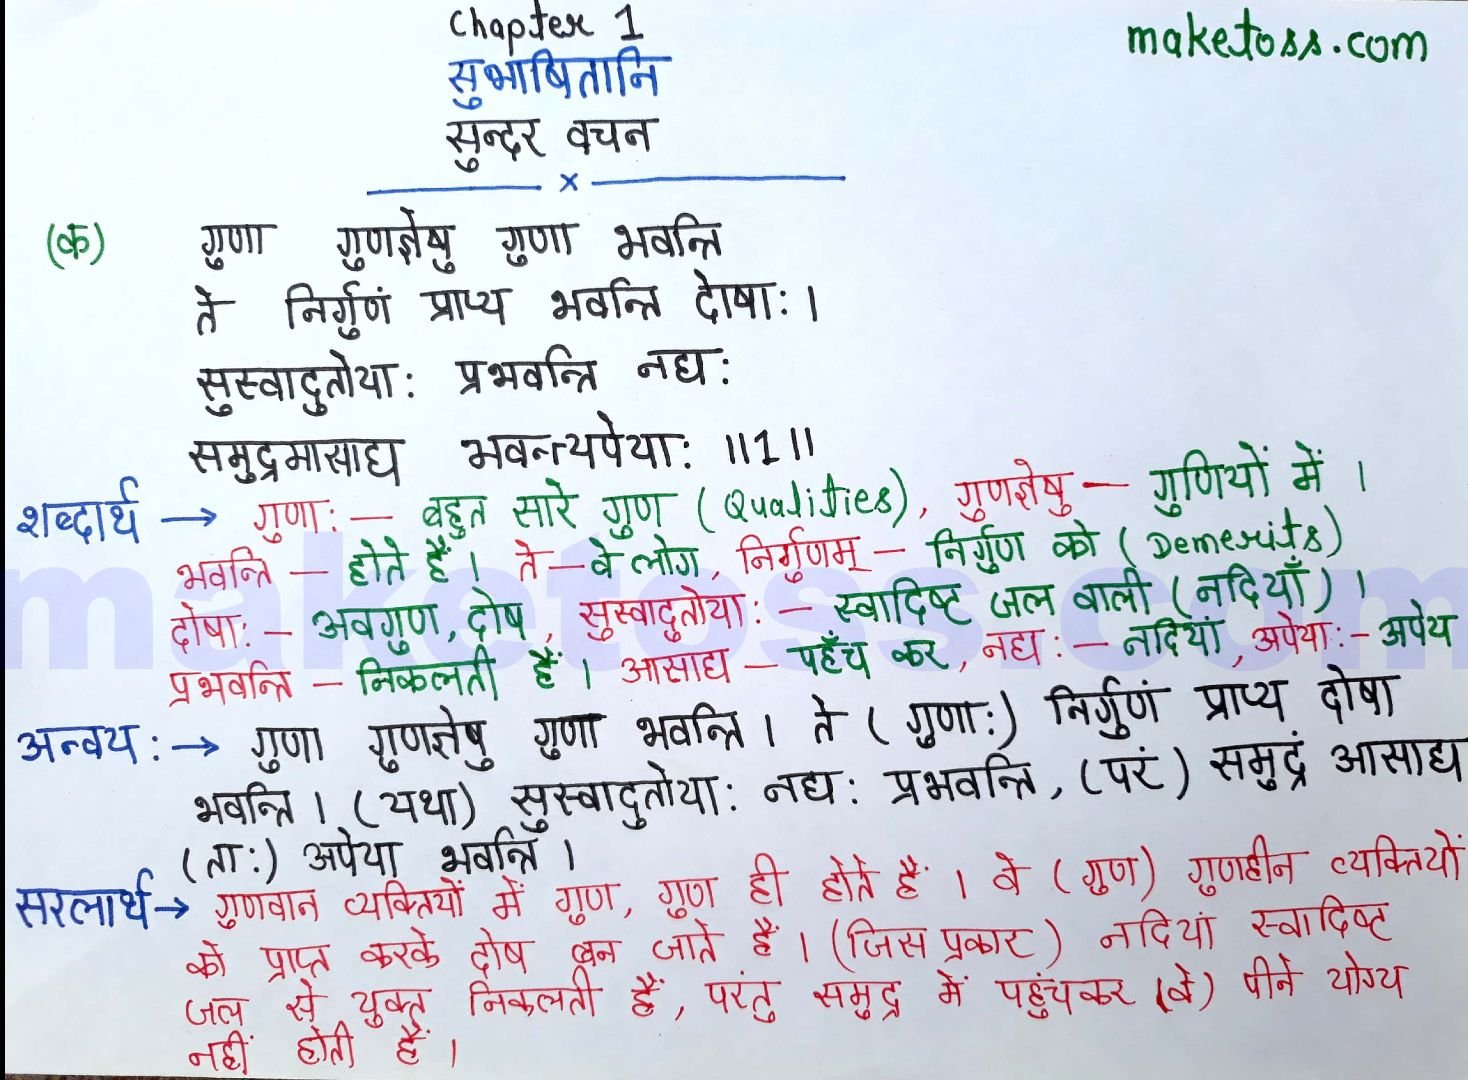 Chapter 1
maketoss.com
सुभाषितानि
सुन्दर वचन
x
(क) गुणा गुणज्ञेषु गुणा भवन्ति
ते निर्गुणं प्राप्य भवन्ति दोषाः।
सुस्वादुतोयाः प्रभवन्ति नद्यः
समुद्रमासाद्य भवन्त्यपेयाः ॥1॥
शब्दार्थ → गुणाः — बहुत सारे गुण (Qualities), गुणज्ञेषु — गुणियों में ।
भवन्ति — होते हैं । ते — वे लोग, निर्गुणम् — निर्गुण को (Demerits)
दोषाः — अवगुण, दोष, सुस्वादुतोयाः — स्वादिष्ट जल वाली (नदियाँ) ।
प्रभवन्ति — निकलती हैं । आसाद्य — पहुँच कर, नद्यः — नदियां, अपेयाः — अपेय
अन्वयः → गुणा गुणज्ञेषु गुणा भवन्ति । ते (गुणाः) निर्गुणं प्राप्य दोषा
भवन्ति । (यथा) सुस्वादुतोयाः नद्यः प्रभवन्ति, (परं) समुद्रं आसाद्य
(ताः) अपेया भवन्ति ।
सरलार्थ → गुणवान व्यक्तियों में गुण, गुण ही होते हैं । वे (गुण) गुणहीन व्यक्तियों
को प्राप्त करके दोष बन जाते हैं । (जिस प्रकार) नदियां स्वादिष्ट
जल से युक्त निकलती हैं, परंतु समुद्र में पहुंचकर (वे) पीने योग्य
नहीं होती हैं ।
maketoss.com